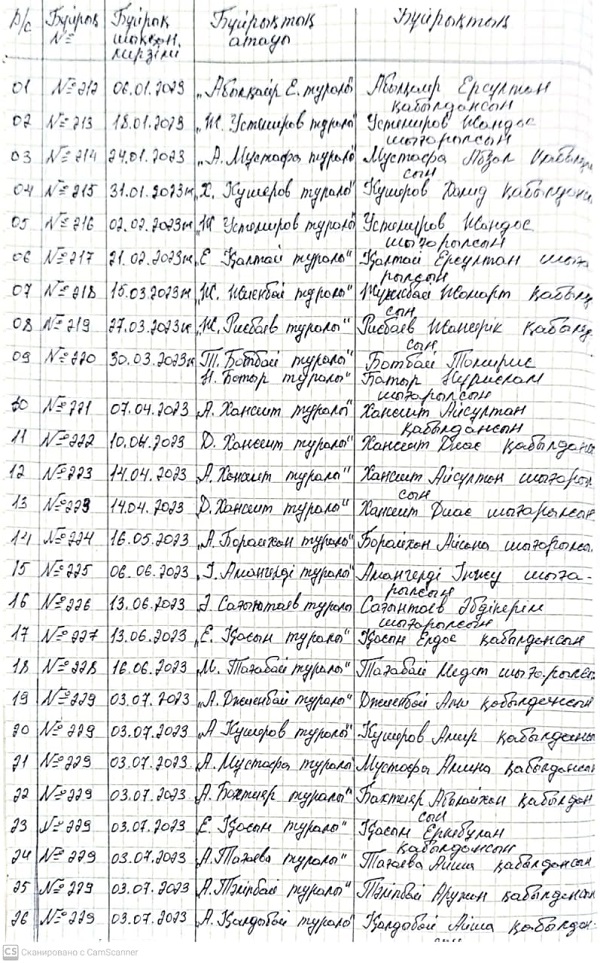 Р/с Бұйрық № Бұйрық шыққан мерзімі Бұйрықтың атауы Бұйрықтың
01 №212 06.01.2023 „Абылқайр Е. туралы" Абылқаир Ерсултан
қабылдансын
02 №213 18.01.2023 „Ж. Устемиров туралы" Устемиров Жандос
шығарылсын
03 №214 24.01.2023 „А. Мустафа туралы" Мустафа Абзал қабылдан
сын
04 №215 31.01.2023ж „Х. Кушеров туралы" Кушеров Халид қабылдан
05 №216 02.02.2023ж „Ж Устемиров туралы" Устемиров Жандос
шығарылсын
06 №217 21.02.2023ж „Е Қалтай туралы" Қалтай Ерсултан шыға
рылсын
07 №218 15.03.2023ж „Ж. Жиенбай туралы" Жомарт қабылд
сын
08 №219 27.03.2023ж „Ж. Рисбаев туралы" Рисбаев Жансерік қабылд
сын
09 №220 30.03.2023ж Т. Ботбай туралы" Ботбай Томирис
Н. Ботор туралы" Батыр Нурислам
шығарылсын
10 №221 07.04.2023 А. Хансеит туралы" Хансеит Айсултан
қабылдансын
11 №222 10.04.2023 Д. Хансеит туралы" Хансеит Диас қабылдан
12 №223 14.04.2023 А. Хансеит туралы" Хансеит Айсултан шығарыл
сын
13 №223 14.04.2023 „Д. Хансеит туралы" Хансеит Диас шығарылсын
14 №224 16.05.2023 „А. Борайхан туралы" Борайхан Айсана шығарылсы
15 №225 06.06.2023 „І. Амангелді туралы" Амангелді Інжу шыға-
рылсын
16 №226 13.06.2023 Ә. Сағынтаев туралы Сағынтаев Әбдікерім
шығарылсын
17 №227 13.06.2023 „Е. Қосын туралы" Қосын Елдос қабылдансын
18 №228 16.06.2023 „М. Тағабай туралы" Тағабай Медет шығарылсы
19 №229 03.07.2023 „А. Джиенбай туралы" Джиенбай қабылдансын
20 №229 03.07.2023 „А Кушеров туралы" Кушеров Амир қабылдансын
21 №229 03.07.2023 „А. Мустафа туралы" Мустафа Амина қабылдансын
22 №229 03.07.2023 „А. Бахтияр туралы" Бахтияр Абылайхан қабылдан
сын
23 №229 03.07.2023 Е. Қосын туралы" Қосын Еркебулан
қабылдансын
24 №229 03.07.2023 „А. Тағаева туралы" Тағаева Айша қабылдансын
25 №229 03.07.2023 „А. Тәліпбай туралы" Тәліпбай Аружан қабылдансын
26 №229 03.07.2023 „А. Қалдыбай туралы" Қалдыбай Айша қабылдан-
CS Сканировано с CamScanner